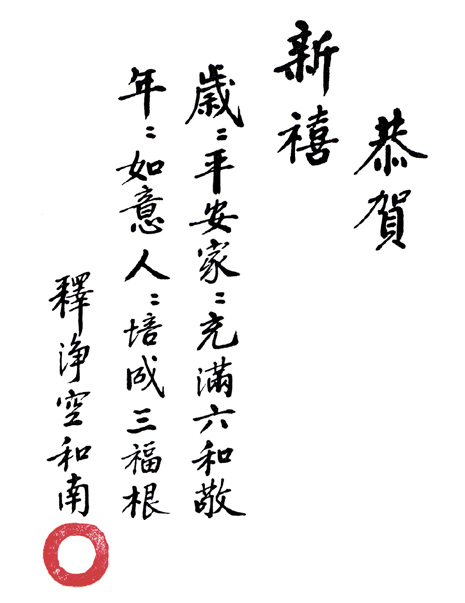 恭賀
新禧
歲：平安家：充滿六和敬
年：如意人：培成三福根
釋淨空和南